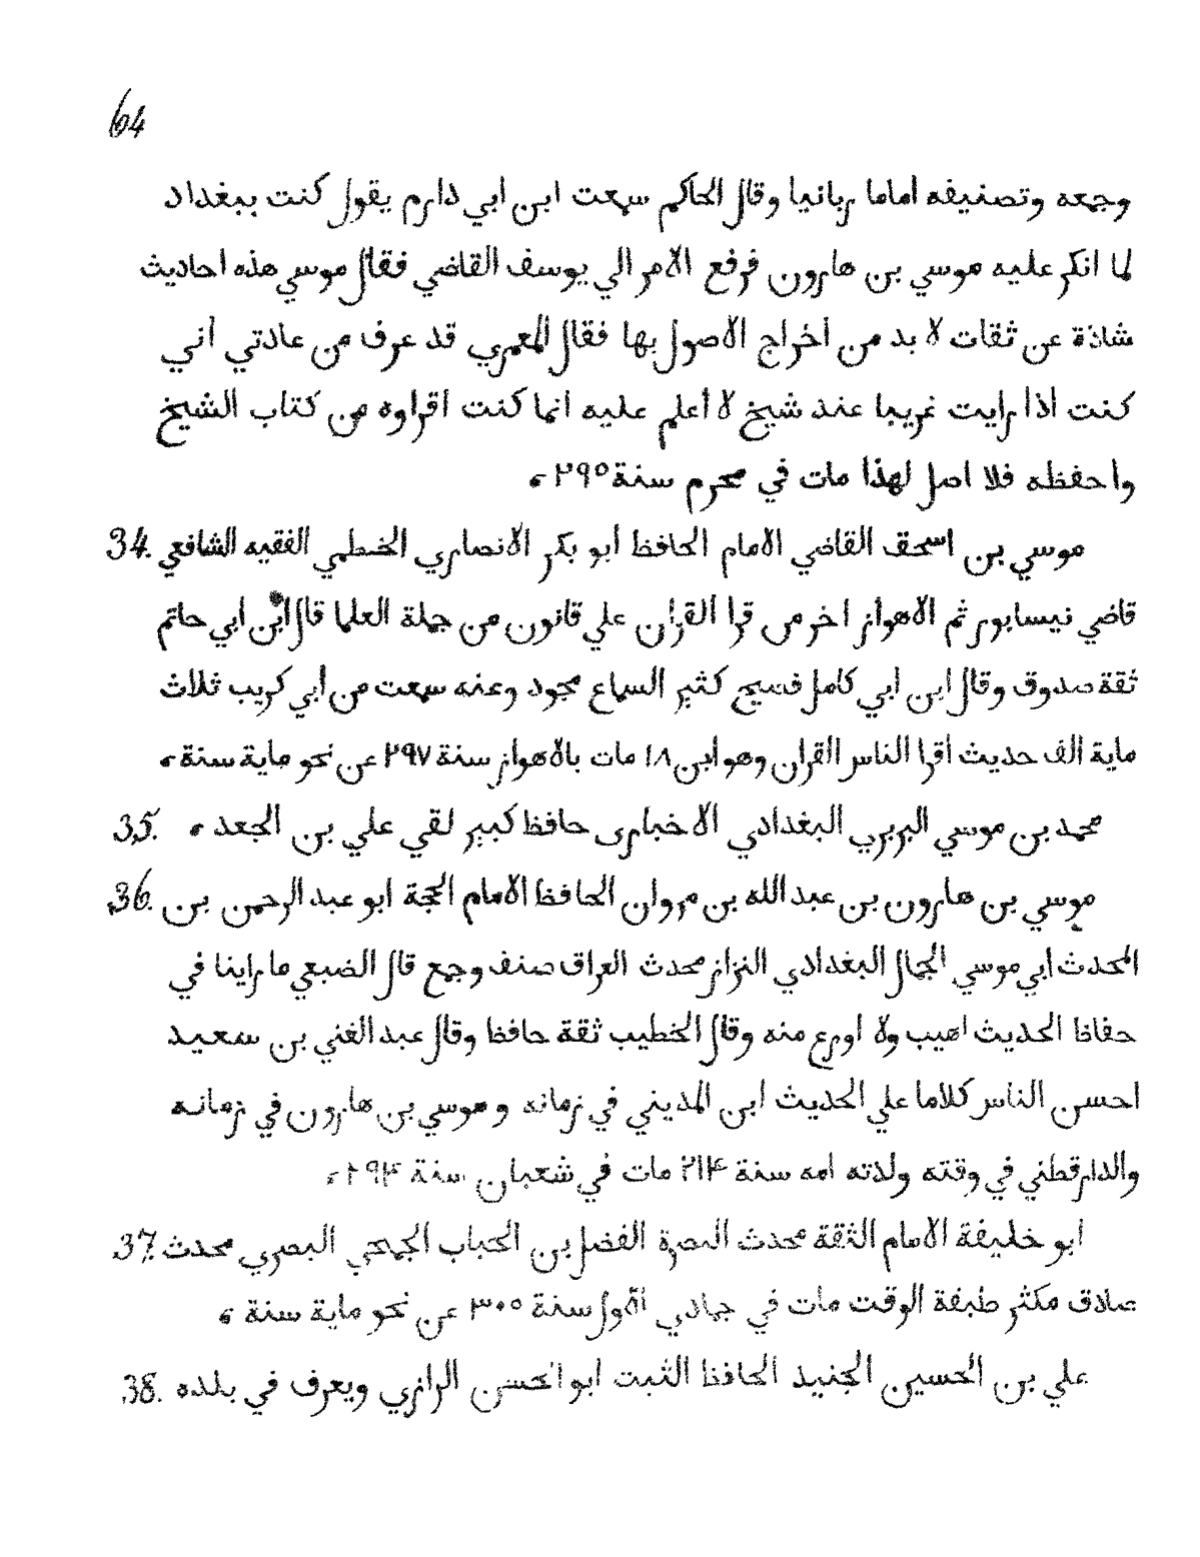 64
وجمعه وتصنيفه اماما ربانيا وقال الحاكم سمعت ابن ابي دارم يقول كنت ببغداد
لما انكر عليه موسي بن هارون فرفع الامر الي يوسف القاضي فقال موسي هذه احاديث
شاذة عن ثقات لا بد من اخراج الاصول بها فقال المعمري قد عرف من عادتي أني
كنت اذا رايت غريبا عند شيخ لا أعلم عليه انما كنت اقراوه من كتاب الشيخ
واحفظه فلا اصل لهذا مات في محرم سنة ٢٩٥
34. موسي بن اسحق القاضي الامام الحافظ أبو بكر الانصاري الخطمي الفقيه الشافعي
قاضي نيسابور ثم الاهواز اخر من قرا القران علي قانون من جملة العلما قال ابن ابي حاتم
ثقة صدوق وقال ابن ابي كامل فصيح كثير السماع مجود وعنه سمعت من أبي كريب ثلاث
ماية الف حديث اقرا الناس القران وهو ابن ١٨ مات بالاهواز سنة ٢٩٧ عن نحو ماية سنة
35. محمد بن موسي البربري البغدادي الاخبارى حافظ كبير لقي علي بن الجعد
36. موسي بن هارون بن عبد الله بن مروان الحافظ الامام الحجة ابو عبد الرحمن بن
المحدث ابي موسي الجمال البغدادي النزاز محدث العراق صنف وجمع قال الضبعي ما راينا في
حفاظ الحديث اهيب ولا اورع منه وقال الخطيب ثقة حافظ وقال عبد الغني بن سعيد
احسن الناس كلاما علي الحديث ابن المديني في زمانه وموسي بن هارون في زمانه
والدارقطني في وقته ولدته امه سنة ٢١٤ مات في شعبان سنة ٢٩٤
37. ابو خليفة الامام الثقة محدث البصرة الفضل بن الحباب الجمحي البصري محدث
صادق مكثر طبقة الوقت مات في جمادي الأول سنة ٣٠٥ عن نحو ماية سنة
38. علي بن الحسين الجنيد الحافظ الثبت ابو الحسن الرازي ويعرف في بلده